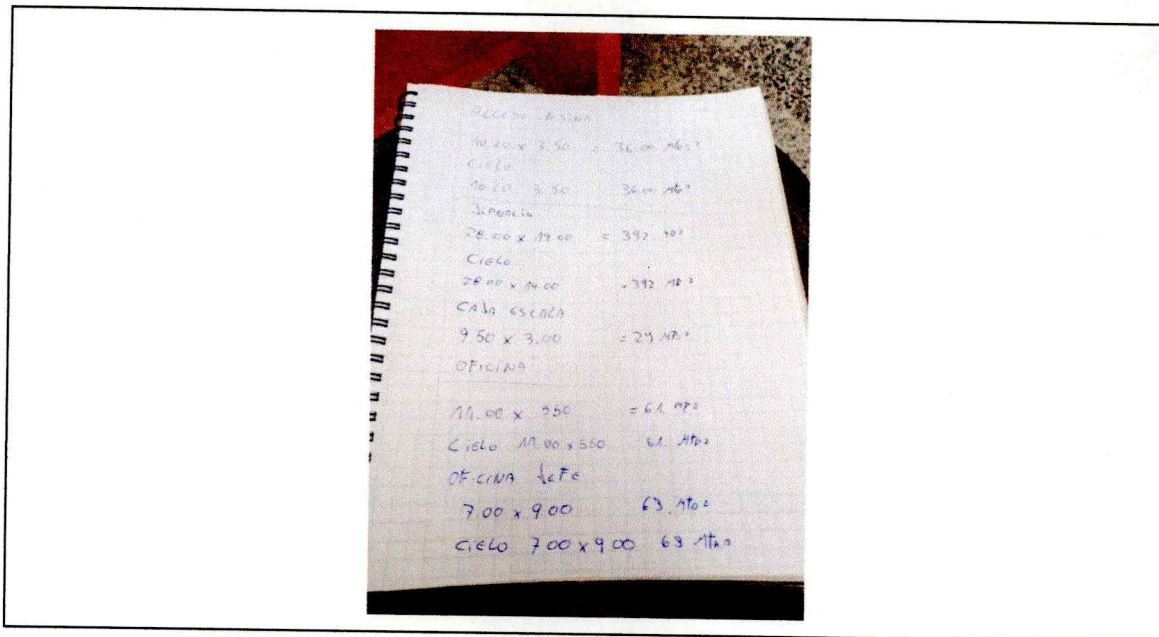 10.20 x 3.50 = 36.00 Mts²
CIELO
10.20 3.50 36.00 Mts²
28.00 x 14.00 = 392 Mts²
CIELO
28.00 x 14.00 = 392 Mts²
CAJA ESCALA
9.50 x 3.00 = 29 Mts²
OFICINA
11.00 x 550 = 61. Mts²
CIELO 11.00 x 550 61. Mts²
OFICINA JEFE
7.00 x 9.00 63. Mts²
CIELO 7.00 x 9.00 63 Mts²